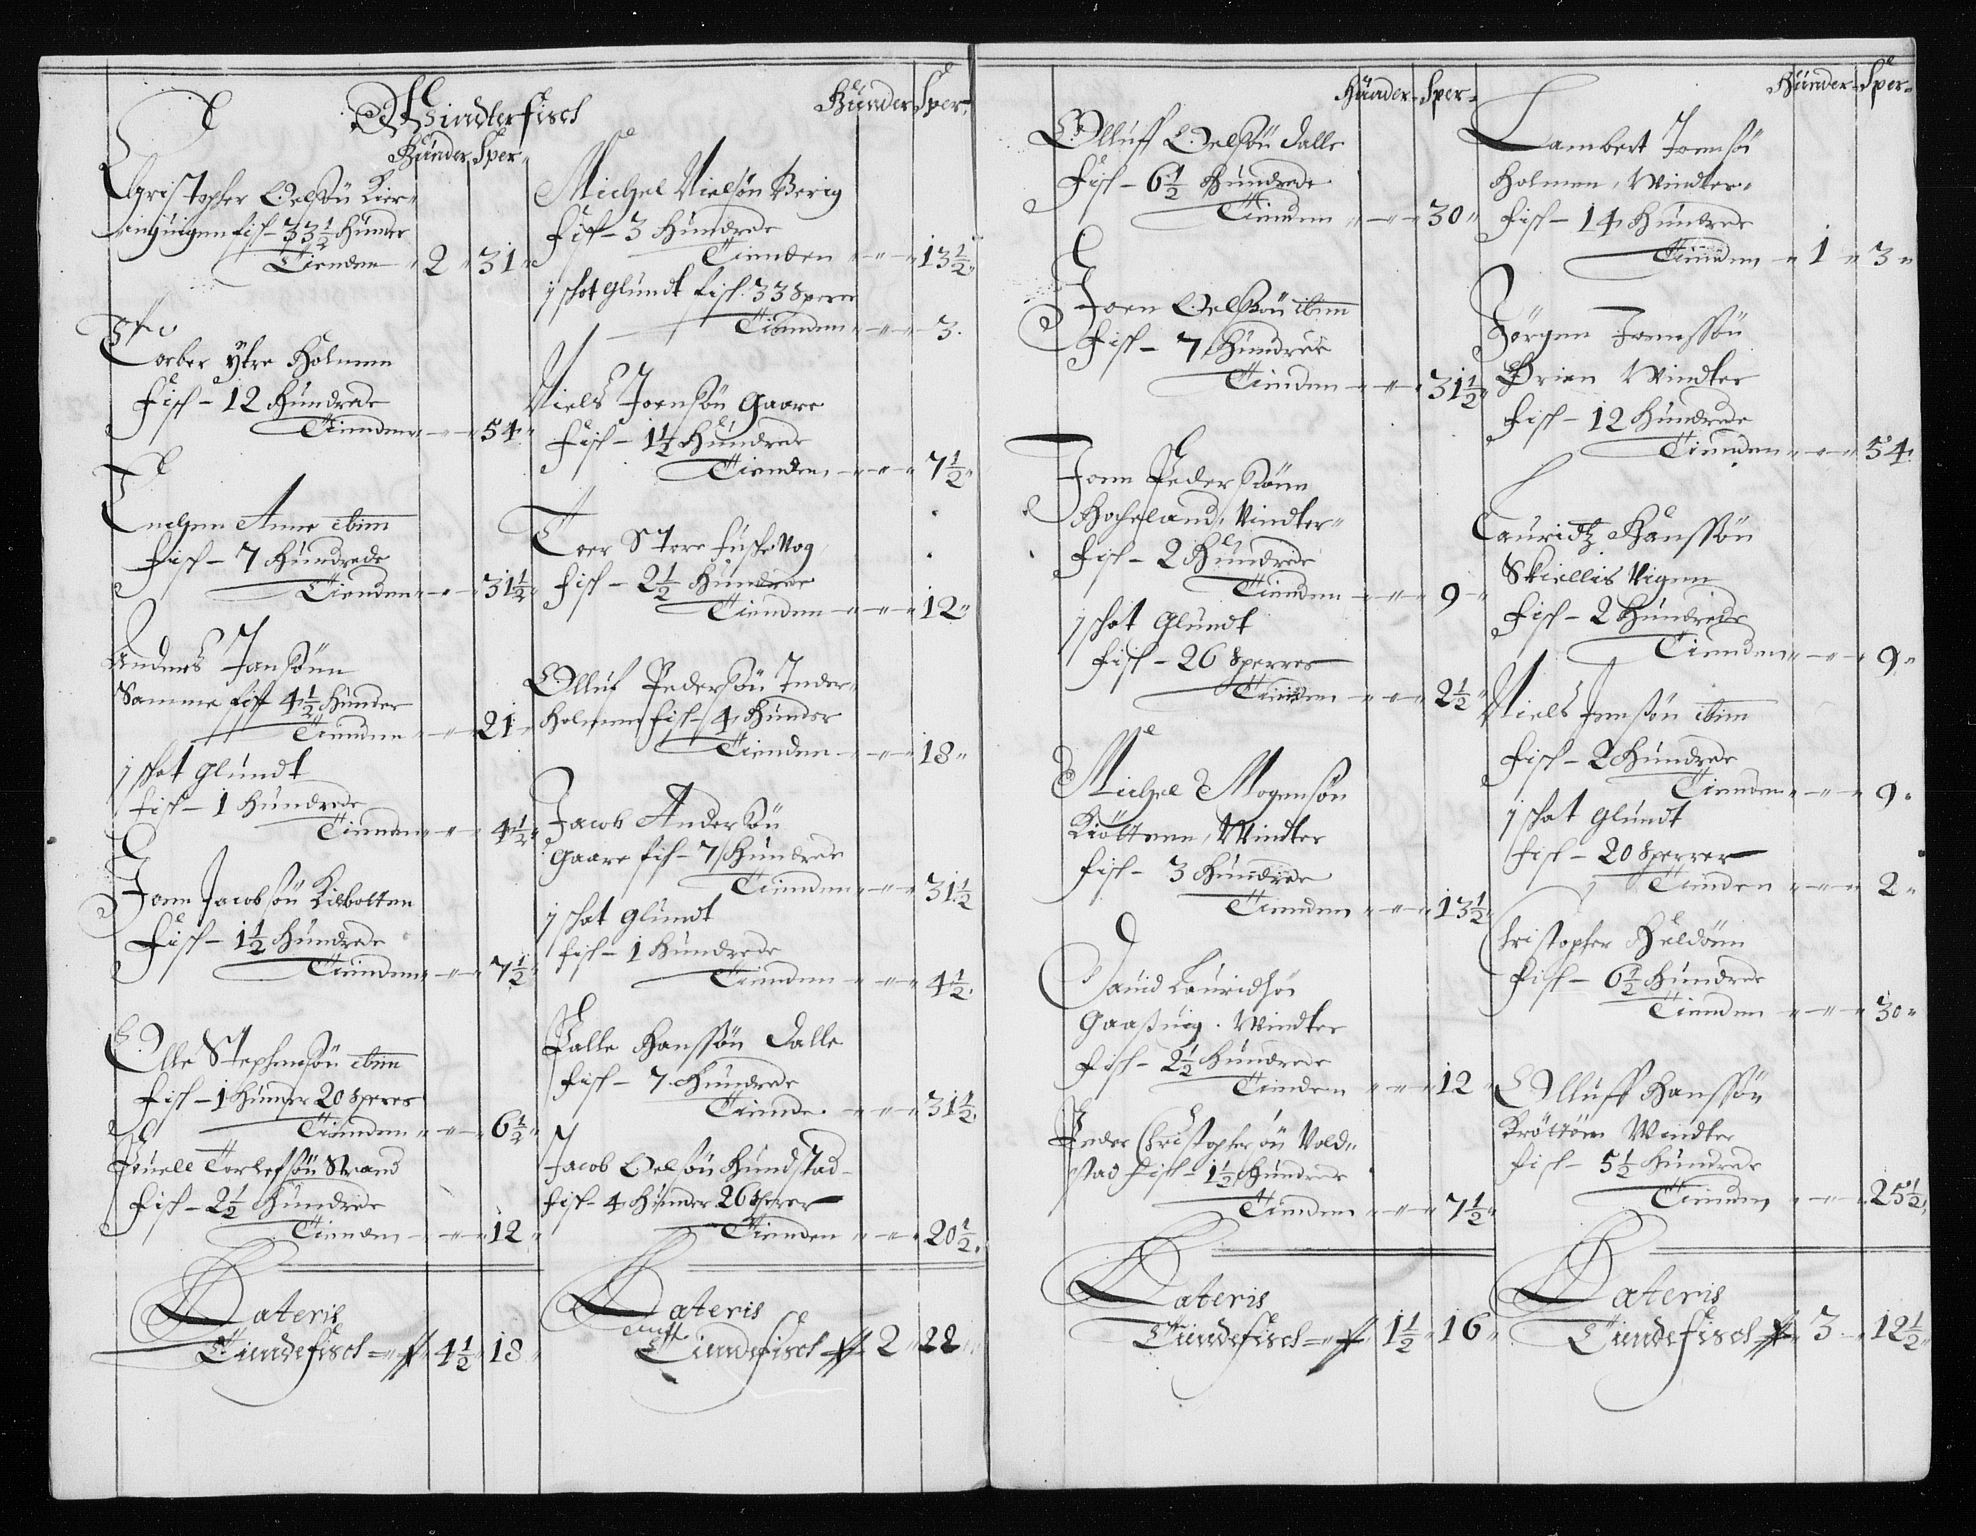 Windterfisch
Hünder Sper
Christopfer Oelsön Kier¬
fisk - 33½ Hünder
Tienden 2 31
Torber ytre Holmen
Fisk - 12 Hündrede
Tienden 54
Anne ibim
Fisk - 7 Hündrede
Tienden 31½
Anders Jansönn
Samme fisk 4½ Hünder
Tienden 21
j skot Glündt
fisk - 1 Hündrede
Tienden 4½
Joen Jacobsön Kilbotten
Fisk - 1½ Hündrede
Tienden 7½
Olle Stephensön ibim
Fisk - 1 Hünder 20 Speres
Tienden 6½
Pouell Torlefsön Strand
Fisk - 2½ Hündrede
Tienden 12
Lateris
Tiendefisch 4½ 18
Hünder Sper
Michel Nielsön Berig
Fisk - 3 Hündrede
Tienden 13½
j skot Glündt fisk 33 Sperer
Tienden 3.
Niels Joensön Gaare
Fisk - 1½ Hündrede
Tienden 7½
Toer Store
fisk - 2½ Hündrede
Tienden 12
Olluf Pedersön Inder¬
holmen fisk - 4 Hünder
Tienden 18
Jacob Andersön
Gaare fisk - 7 Hündrede
Tienden 31½
j skot Glündt
fisk - 1 Hündrede
Tienden 4½
Palle Hanssön Dalle
fisk - 7 Hündrede
Tiende 31½
Jacob Oelsön Hundstad
fisk - 4 Hünder 26 Sperer
Tienden 20½
Lateris
Tiendefisch 2 22
Hünder Sper
Olluff Oelsön Dalle
Fisk - 6½ Hündrede
Tienden 30
Joen Oelsön ibim
Fisk - 7 Hündrede
Tienden 31½
Joen Pedersönn
Windter¬
fisk - 2 Hündrede
Tienden 9
j skot Glündt
fisk - 26 Sperres
Tienden 2½
Michel Mogensön
Windter
fisk - 3 Hündrede
Tienden 13½
Dauid Lauridsön
Windter
Fisk - 2½ Hündrede
Tienden 12
Peder Christophersön Vold¬
stad Fisk - 1½ Hündrede
Tienden 7½
Lateris
Tiendefisch 1½ 16
Hünder Sper
Lambert Joensön
Holmen, Windter¬
fisk - 14 Hündrede
Tienden 1 3
Jörgen Joenssön
Windter
Fisk - 12 Hündrede
Tienden 54
Lauridtz Hanssön
Skiellis Vigen
Fisk - 2 Hündrede
Tienden 9
Niels Jensön ibim
fisk - 2 Hündrede
Tienden 9
j skot Glündt
fisk - 20 Sperrer
Tienden 2
Christopfer
Fisk - 6½ Hündrede
Tienden 30
Olluff Hanssön
Windter
fisk - 5½ Hündrede
Tienden 25½
Lateris
Tiendefisch 3 12½